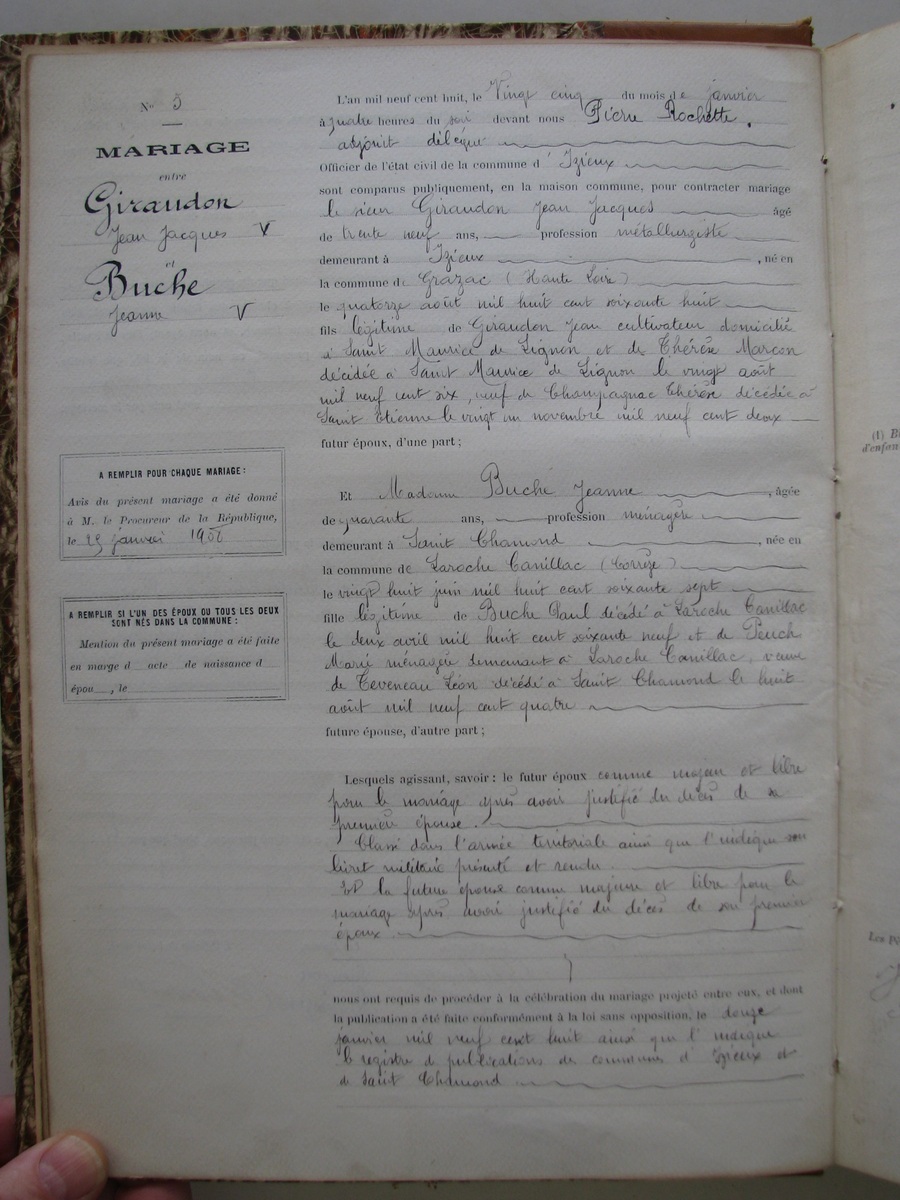 N° 5
MARIAGE
entre
Giraudon
Jean Jacques V
et
Buche
Jeanne V
A REMPLIR POUR CHAQUE MARIAGE :
Avis du présent mariage a été donné
à M. le Procureur de la République,
le 25 janvier 1908
A REMPLIR SI L'UN DES ÉPOUX OU TOUS LES DEUX
SONT NÉS DANS LA COMMUNE :
Mention du présent mariage a été faite
en marge d acte de naissance d
épou , le
L'an mil neuf cent huit, le Vingt cinq du mois de janvier
à quatre heures du soir devant nous Pierre Rochette,
adjoint délégué
Officier de l'état civil de la commune d' Izieux
sont comparus publiquement, en la maison commune, pour contracter mariage
le sieur Giraudon Jean Jacques âgé
de trente neuf ans, profession métallurgiste
demeurant à Izieux , né en
la commune de Grazac (Haute Loire)
le quatorze août mil huit cent soixante huit
fils légitime de Giraudon Jean cultivateur domicilié
à Saint Maurice de Lignon et de Thérèse Marcon
décédée à Saint Maurice de Lignon le vingt août
mil neuf cent six, veuf de Champagnac Thérèse décédée à
Saint Etienne le vingt un novembre mil neuf cent deux
futur époux, d'une part ;
Et Madame Buche Jeanne , âgée
de quarante ans, profession ménagère
demeurant à Saint Chamond , née en
la commune de Laroche Canillac (Corrèze)
le vingt huit juin mil huit cent soixante sept
fille légitime de Buche Paul décédé à Laroche Canillac
le deux avril mil huit cent soixante neuf et de Peuch
Marie ménagère demeurant à Laroche Canillac, veuve
de Teveneau Léon décédé à Saint Chamond le huit
août mil neuf cent quatre
future épouse, d'autre part ;
Lesquels agissant, savoir : le futur époux comme majeur et libre
pour le mariage après avoir justifié du décès de sa
première épouse.
Classé dans l'armée territoriale ainsi que l'indique son
livret militaire présenté et rendu
Et la future épouse comme majeure et libre pour le
mariage après avoir justifié du décès de son premier
époux
nous ont requis de procéder à la célébration du mariage projeté entre eux, et dont
la publication a été faite conformément à la loi sans opposition, le douze
janvier mil neuf cent huit ainsi que l'indique
le registre d publications des communes d' Izieux et
de Saint Chamond
(1) B
d'enfan
Les pé